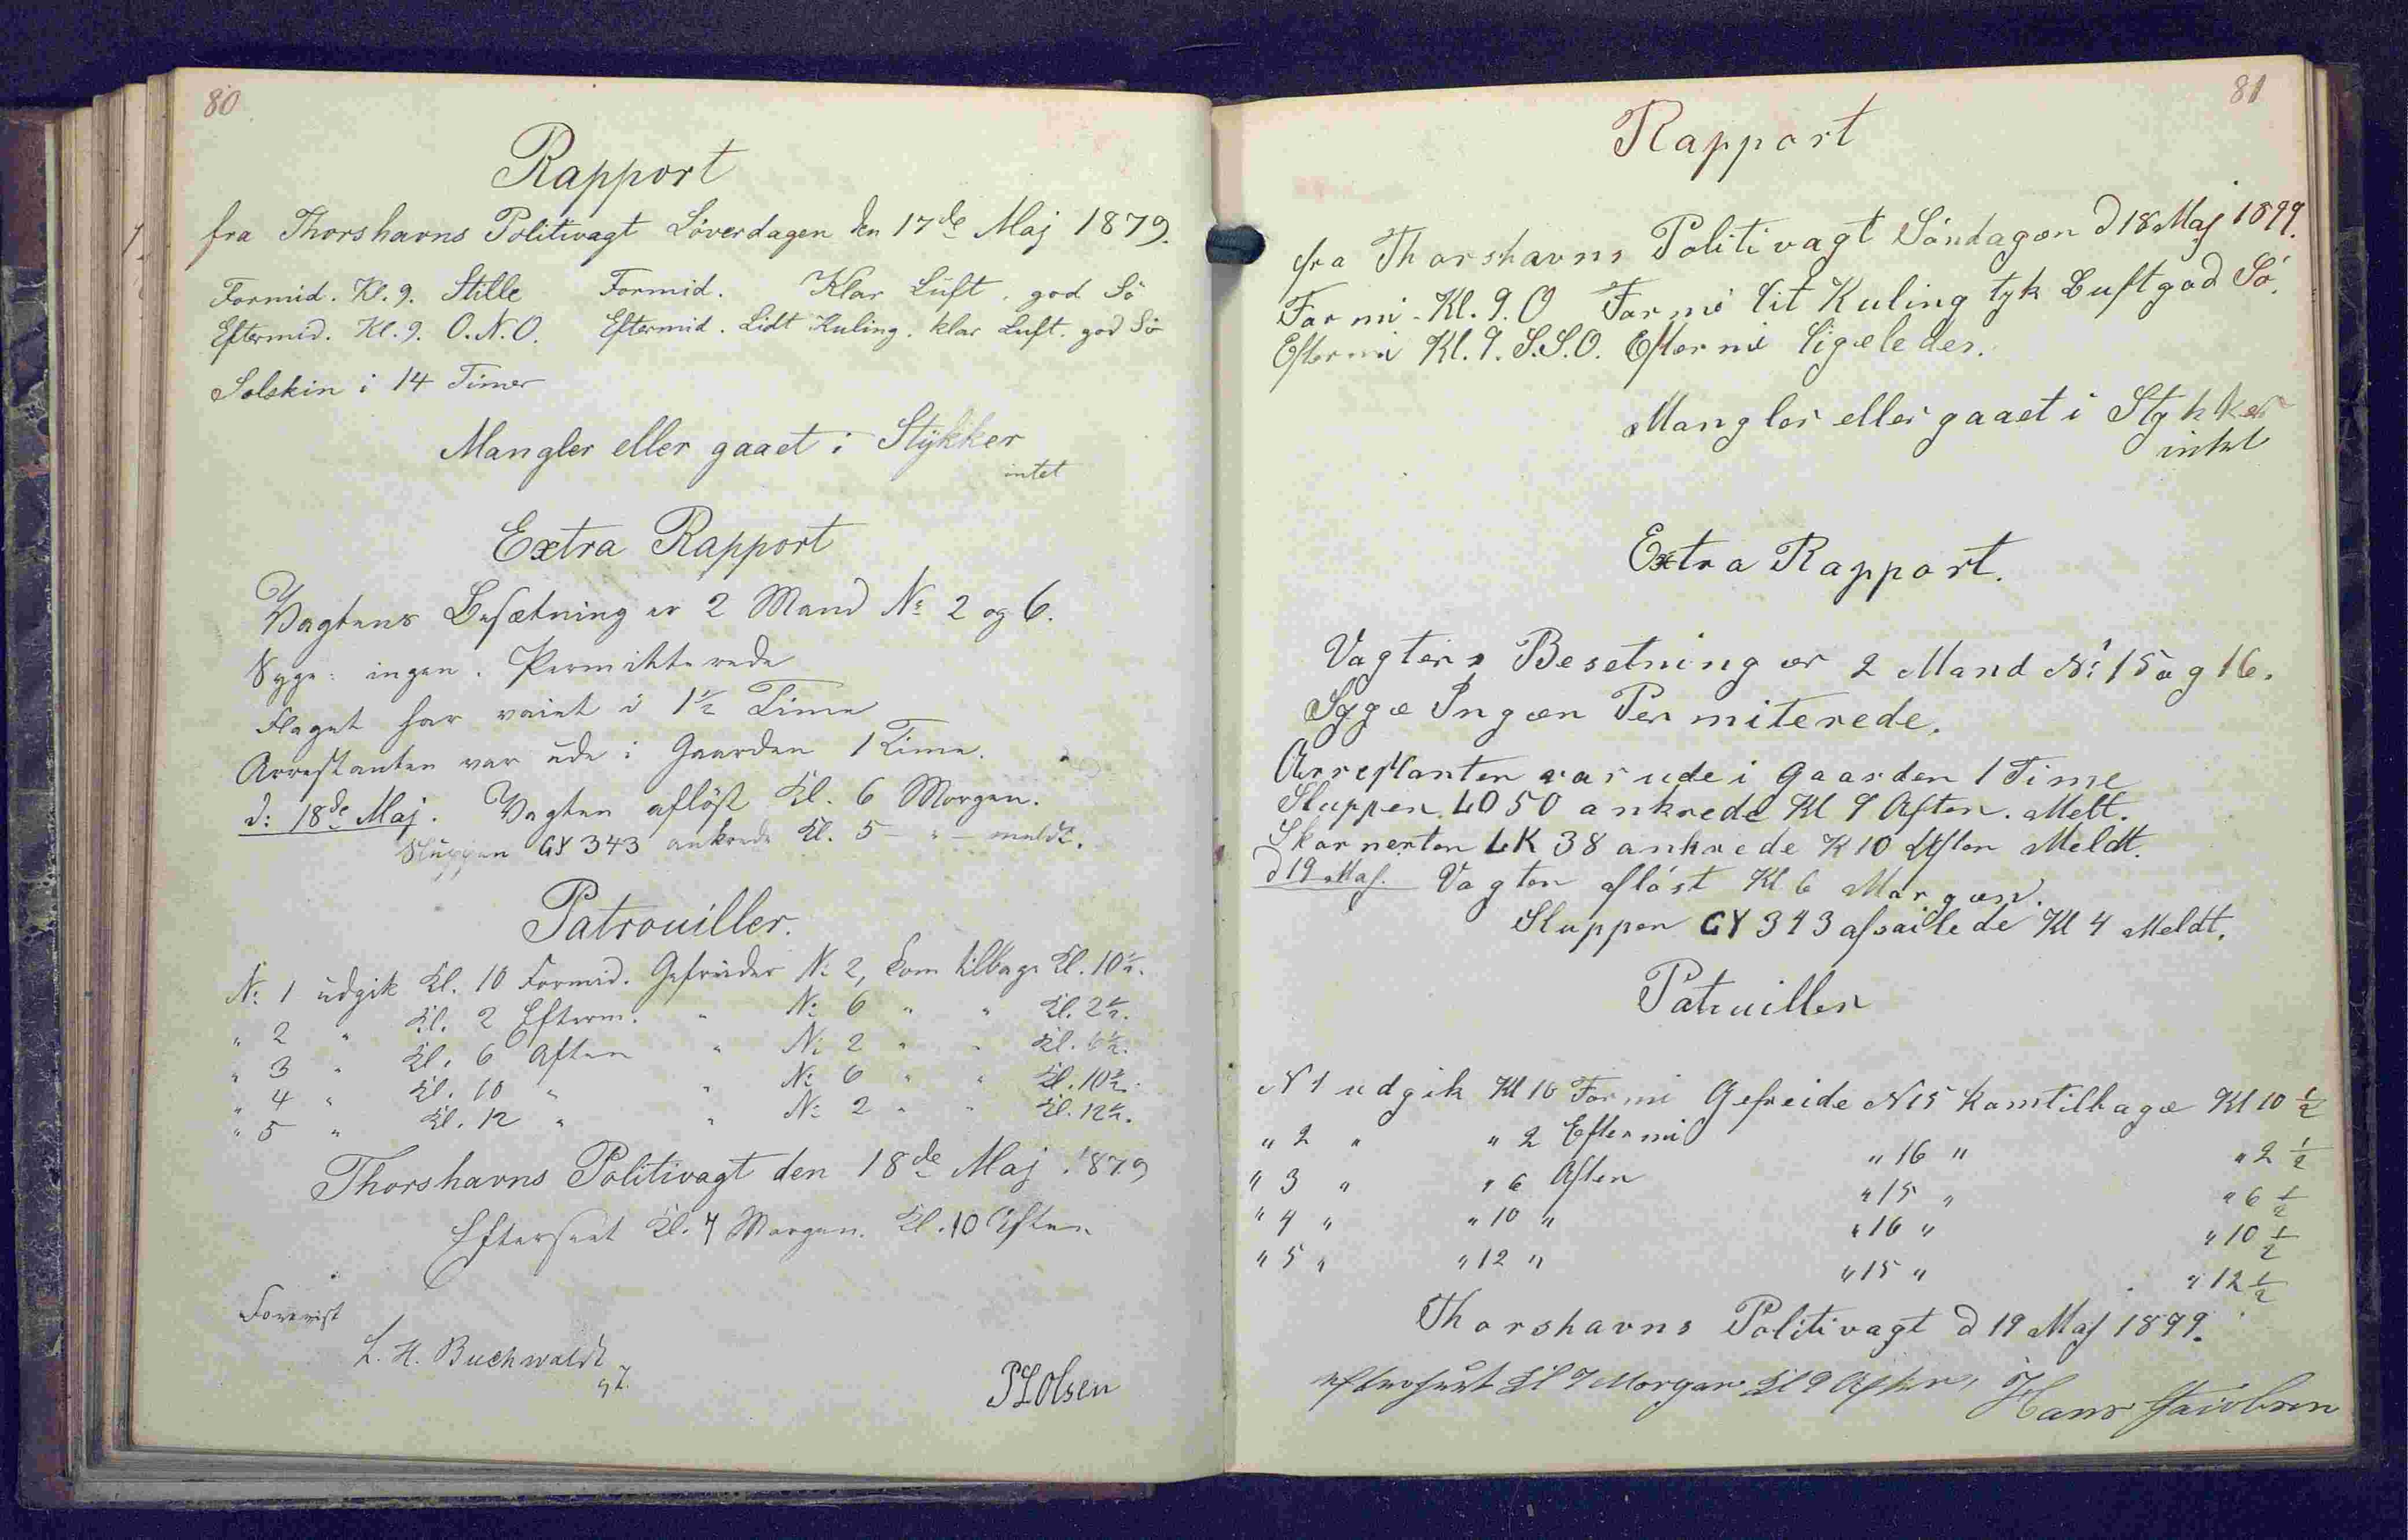 80
Rapport
fra Thorshavns Politivagt Löverdagen den 17de Maj 1879.
Formid. Kl. 9. Stille Formid. Klar Luft, god Sö
Eftermid. Kl. 9. O.N.O. Eftermid. Lidt Kuling. klar Luft. god Sö
Solskin i 14 Timer
Mangler eller gaaet i Stykker
intet
Extra Rapport
Vagtens Besætning er 2 Mand No 2 og 6.
Syge: ingen. Permitterede
Flaget har vaiet i 1½ Time
Arrestanten var ude i Gaarden 1 Time.
d: 18de Maj. Vagten aflöst Kl. 6 Morgen.
Sluppen GY 343 ankrede Kl. 5 - " - meldt.
Patrouiller.
No 1 udgik Kl. 10 Formid. Gefreider No 2, kom tilbage Kl. 10½.
" 2 " Kl. 2 Efterm. " No 6 " " Kl. 2½.
" 3 " Kl. 6 Aften " No 2 " " Kl. 6½.
" 4 " Kl. 10 " " No 6 " " Kl. 10½.
" 5 " Kl. 12 " " No 2 " " Kl. 12½.
Thorshavns Politivagt den 18de Maj 1879
Efterseet Kl. 7 Morgen. Kl. 10 Aften
Forevist
L. H. Buchwaldt
PLOlsen
81
Rapport
fra Thorshavns Politivagt Söndagen d 18 Maj 1899.
Formi Kl. 9. O Formi lit Kuling tyk Luft god Sö.
Eftermi Kl. 9. S.S.O. Eftermi ligeledes.
Mangler eller gaaet i Stykker
intet
Extra Rapport.
Vagtens Besetning er 2 Mand No 15 og 16.
Syge Ingen Permiterede.
Arrestanten var ude i Gaarden 1 Time
Sluppen LO 50 ankrede Kl 9 Aften. Melt.
Skonnerten LK 38 ankrede K 10 Aften Meldt.
d 19 Maj. Vagten aflöst Kl 6 Morgen.
Sluppen GY 343 afsailede Kl 4 Meldt.
Patruiller
N 1 udgik Kl 10 Formi Gefreide N 15 kom tilbage Kl 10 ½
" 2 " " 2 Eftermi " 16 " " 2 ½
" 3 " " 6 Aften " 15 " " 6 ½
" 4 " " 10 " " 16 " " 10 ½
" 5 " " 12 " " 15 " " 12 ½
Thorshavns Politivagt d 19 Maj 1899.
efterseet Kl 7 Morgen Kl 9 Aften, Hans Jacobsen